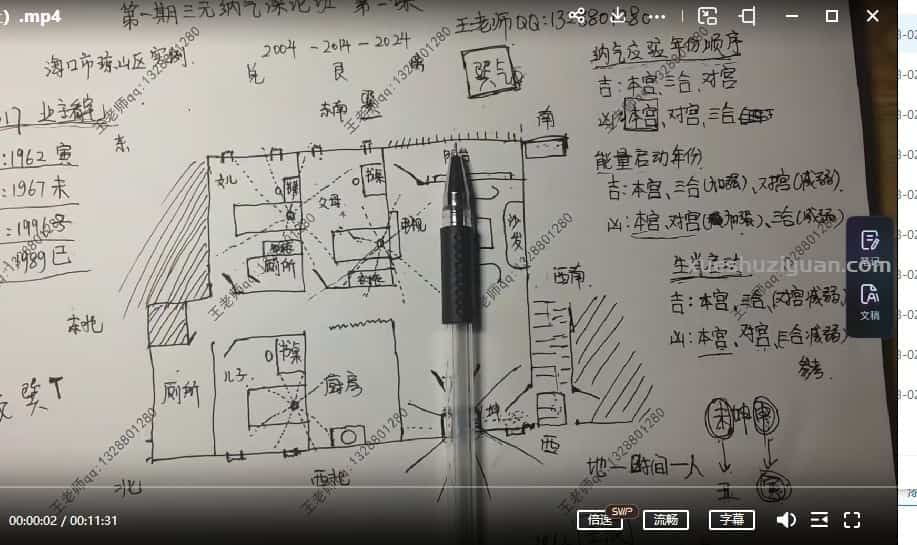 ) .mp4
第一期三元纳气深论班 第一课
王老师QQ:1328801280
海口市琼山区案例
2004 - 2014 - 2024
兑 艮
巽气
纳气应验年份顺序
吉:本宫,三合,对宫
凶:本宫,对宫,三合
东南
南
东
:1962 寅
:1967 未
989 巳
能量启动年份
吉:本宫、三合(加强)、对宫(减弱)
凶:本宫、对宫(加强)、三合(减弱)
女儿
书桌
父母
书桌
电视
沙发
厕所
衣柜
西南
生肖启动
吉:本宫、三合、对宫减弱
凶:本宫、对宫、三合减弱
参考
厕所
儿子
书桌
厨房
坤
西
西北
未坤申
地—时间—人
丑
寅
王老师qq:1328801280
xueshuziyuan.com
笔记
文稿
00:00:02 / 00:11:31
倍速
SWP
流畅
字幕